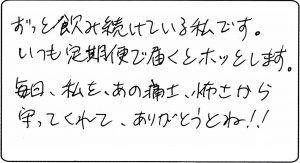 ずっと飲み続けている私です。
いつも定期便で届くとホッとします。
毎日、私を、あの痛さ、怖さから
守ってくれて、ありがとうとね!!